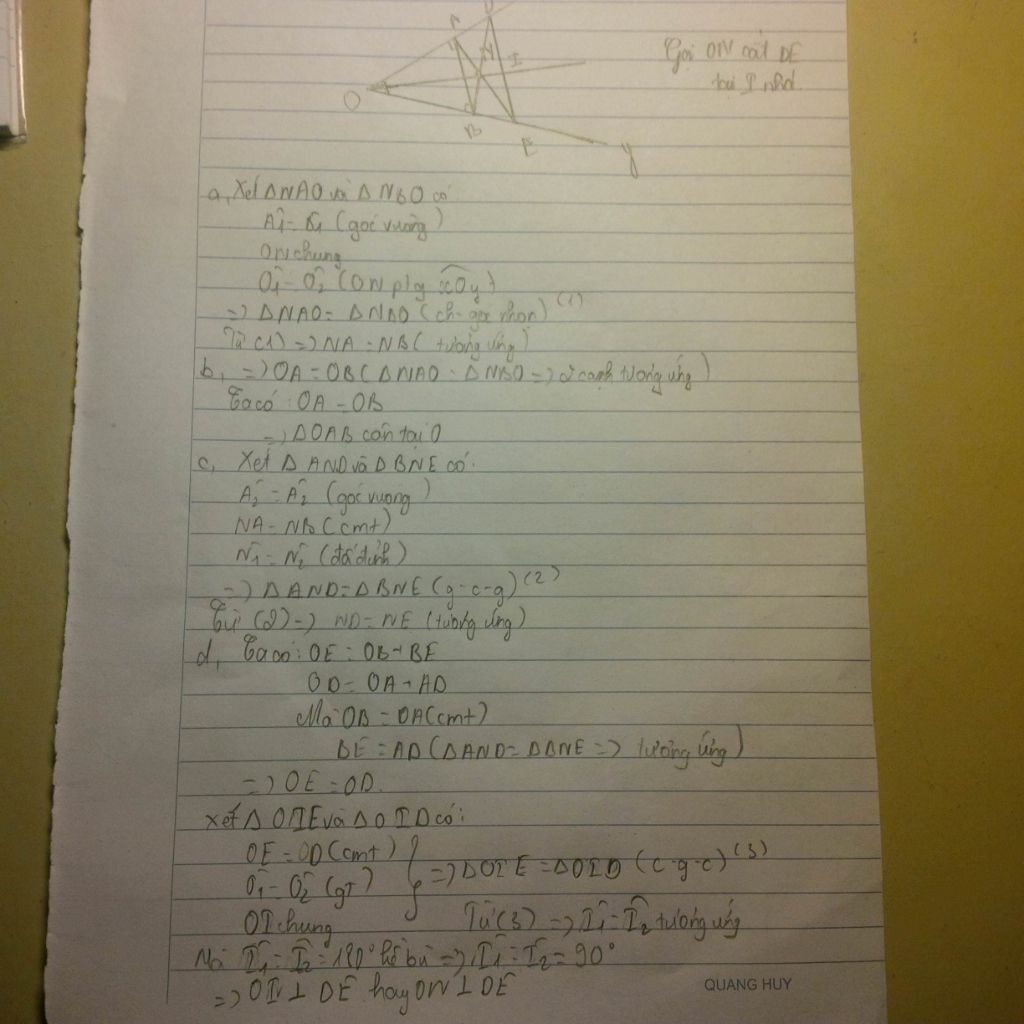 A
D
Gọi ON cắt DE
tại I nhá.
N
I
O
B
E
y
a, Xét ΔNAO và ΔNBO có
Â1 = B̂1 (góc vuông)
ON chung
Ô1 = Ô2 (ON p/g xÔy)
=> ΔNAO = ΔNBO (ch-góc nhọn) (1)
Từ (1) => NA = NB (tương ứng)
b, => OA = OB (ΔNAO = ΔNBO => 2 cạnh tương ứng)
Ta có: OA = OB
=> ΔOAB cân tại O
c, Xét ΔAND và ΔBNE có:
Â2 = Â2 (góc vuông)
NA = NB (cmt)
N̂1 = N̂2 (đối đỉnh)
=> ΔAND = ΔBNE (g-c-g) (2)
Từ (2) => ND = NE (tương ứng)
d, Ta có: OE = OB + BE
OD = OA + AD
Mà OB = OA (cmt)
BE = AD (ΔAND = ΔBNE => tương ứng)
=> OE = OD.
Xét ΔOIE và ΔOID có:
OE = OD (cmt)
Ô1 = Ô2 (gt) } => ΔOIE = ΔOID (c-g-c) (3)
OI chung Từ (3) => Î1 = Î2 tương ứng
Mà Î1 = Î2 = 180° kề bù => Î1 = Î2 = 90°
=> OI ⊥ DE hay ON ⊥ DE
QUANG HUY